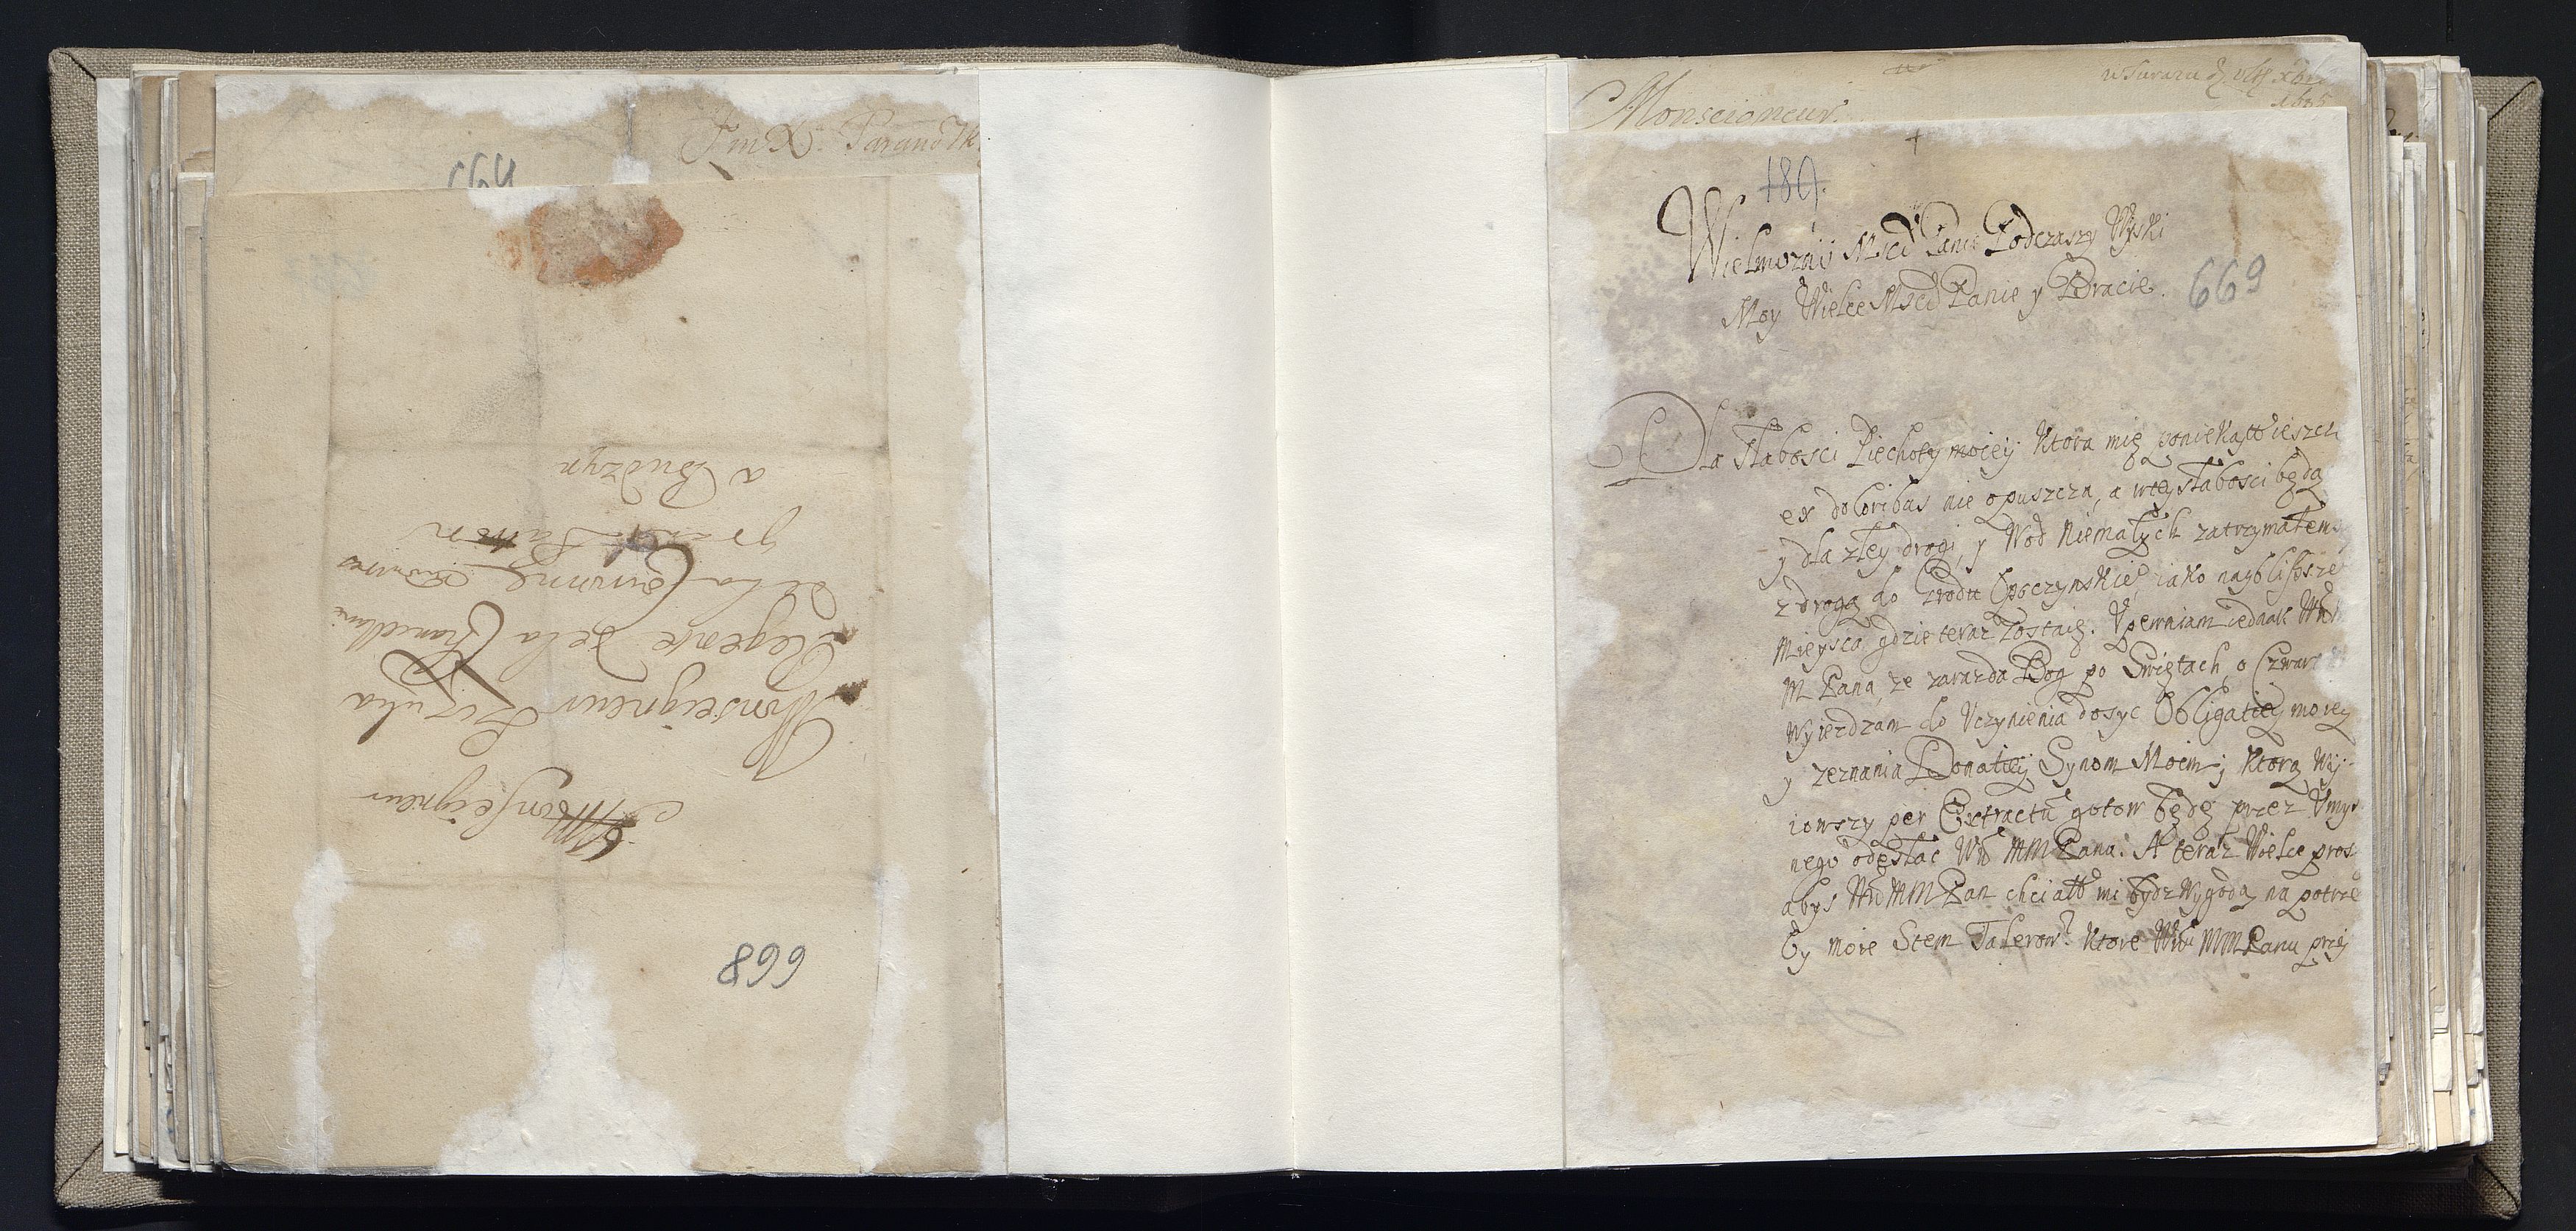 Monseigneur
Monseigneur Szczuka
Regente de la Chancellerie
de la Couronne
a Budzyn
668
Monseigneur.
189.
Wielmozny Mści Panie Podczaszy Wyski
Moy Wielce Mści Panie y Bracie.
669
Dla słabości Piechoty moiey ktora mię poniekąd ieszcze
ex doloribus nie opuszcza, a w tey słabości będą
y dla złey drogi, y wod niemałych zatrzymałem
z drogą do Grodu Opoczynskie iako naybliszsze
mieysca gdzie teraz zostaię. Upewniam iednak Wm
M Pana, ze zaraz da Bog po Swiętach, o Czwar
wyiezdzam do uczynienia dosyc Obligatiey moiey
y zeznania Donatiey Synom Moim, ktorą wy-
iowszy per Extractu gotow będę przez Umys
nego odesłac Wm MM Pana. A teraz Wielce pros
abys Wm MM Pan chciał mi bydz wygodą na potrze
by moie Stem Talerow ktore Wm MM Panu przy